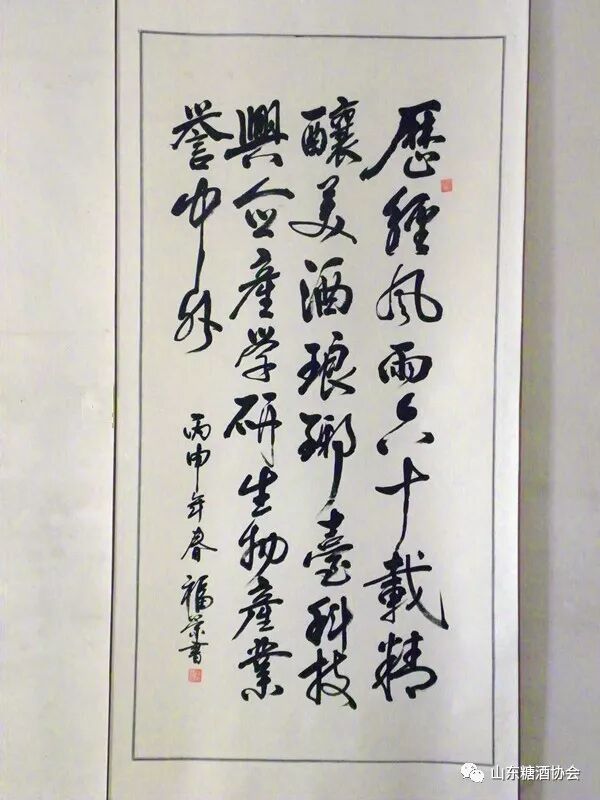 歷經風雨六十載精
釀美酒琅琊臺科技
興企產学研生物產業
譽中外
丙申年春 福榮書
山东糖酒协会